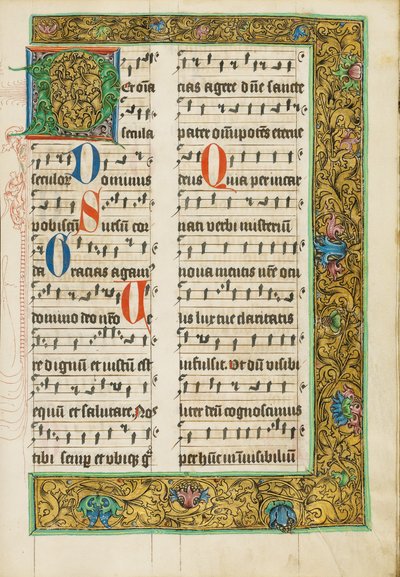 Per om̄ia
secula
seculor̄ Dominus
vobiscū Sursū cor
da Gracias agam⁹
domino deo nr̄o Ue
re dignū et iustū est
equū et salutare. Nos
tibi semp̄ et vbiqꝫ gͣ
cias agere dn̄e sancte
pater om̄ipotēs eterne
deus Quia per incar
nati verbi misteriū
noua mentis nr̄e ocu
lis lux tue claritatis
infulsit. Ut dū visibi
liter deū cognoscimus
per hūc in inuisibiliū